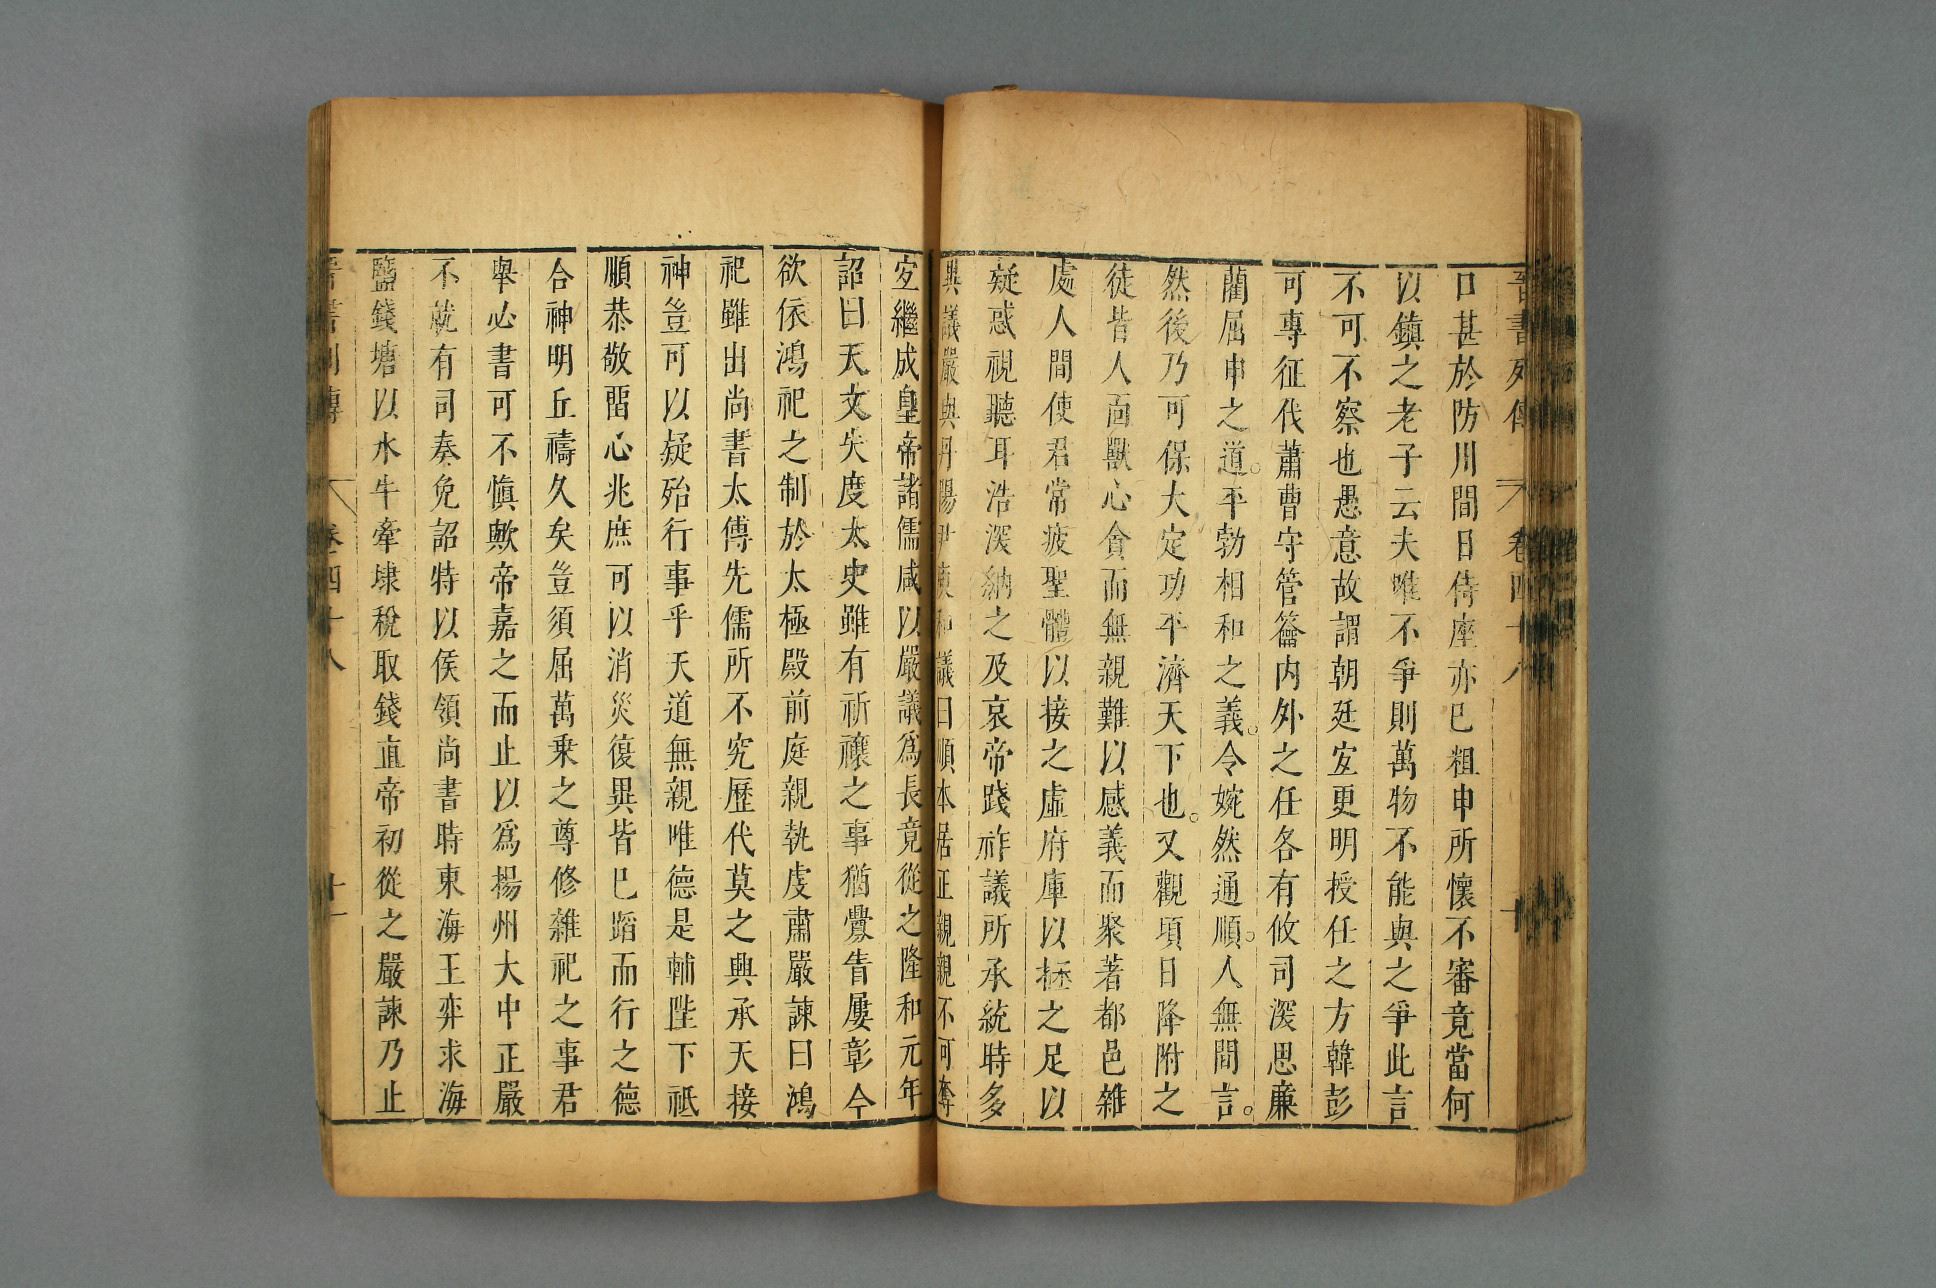 晉書列傳 卷四十八 十
口甚於防川間日侍座亦已粗申所懷不審竟當何
以鎮之老子云夫唯不爭則萬物不能與之爭此言
不可不察也愚意故謂朝廷宜更明授任之方韓彭
可專征伐蕭曹守管籥內外之任各有攸司深思廉
藺屈申之道平勃相和之義令婉然通順人無間言
然後乃可保大定功平濟天下也又觀頃日降附之
徒皆人面獸心貪而無親難以感義而聚著都邑雜
處人間使君常疲聖體以接之虛府庫以拯之足以
疑惑視聽耳浩深納之及哀帝踐祚議所承統時多
異議嚴與丹陽尹庾和議曰順本居正親親不可奪
宜繼成皇帝諸儒咸以嚴議爲長竟從之隆和元年
詔曰天文失度太史雖有祈禳之事猶釁眚屢彰今
欲依鴻祀之制於太極殿前庭親執虔肅嚴諫曰鴻
祀雖出尚書太傳先儒所不究歷代莫之興承天接
神豈可以疑殆行事乎天道無親唯德是輔陛下祗
順恭敬畱心兆庶可以消災復異皆已蹈而行之德
合神明丘禱久矣豈須屈萬乘之尊修雜祀之事君
舉必書可不慎歟帝嘉之而止以爲揚州大中正嚴
不就有司奏免詔特以侯領尚書時東海王弈求海
鹽錢塘以水牛牽埭稅取錢直帝初從之嚴諫乃止
晉書列傳 卷四十八 十一